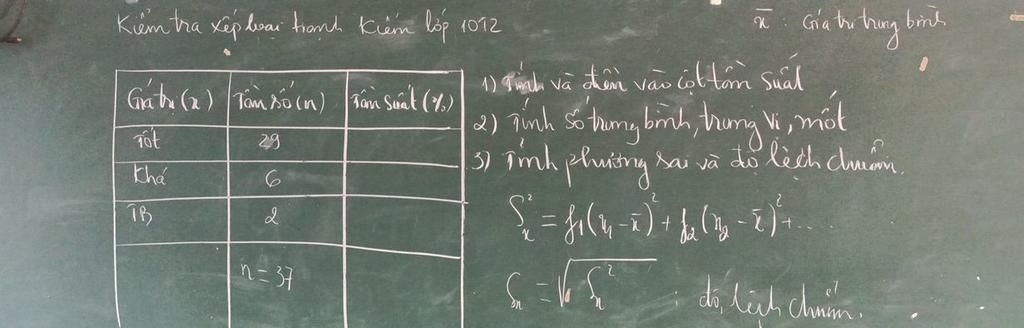 Kiểm tra xếp loại hạnh kiểm lớp 10T2
x̄ : Giá trị trung bình
Giá trị (x) Tần số (n) Tần suất (%)
Tốt 29
Khá 6
TB 2
n = 37
1) Tính và điền vào cột tần suất
2) Tính số trung bình, trung vị, mốt
3) Tính phương sai và độ lệch chuẩn.
S²ₓ = f₁(x₁ - x̄)² + f₂(x₂ - x̄)² + ...
Sₓ = √S²ₓ : độ lệch chuẩn.